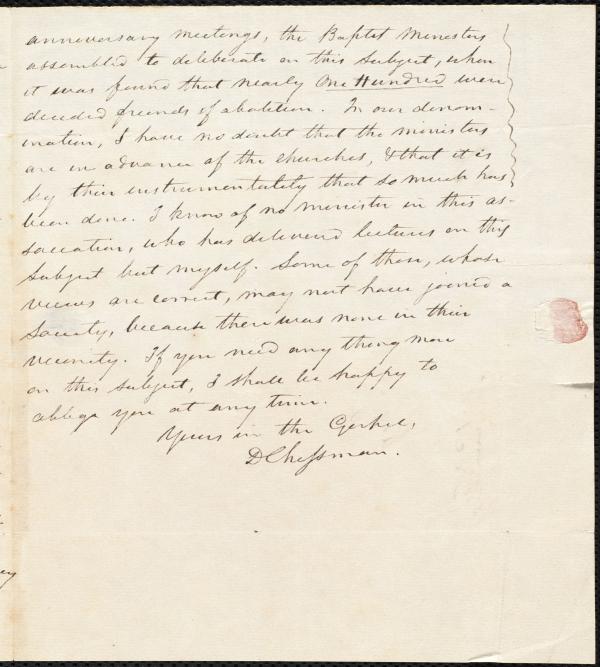 anniversary meetings, the Baptist Ministers
assembled to deliberate on this subject, when
it was found that nearly One Hundred were
decided friends of abolition. In our denom-
ination, I have no doubt that the ministers
are in advance of the churches, & that it is
by their instrumentality that so much has
been done. I know of no minister in this as-
sociation, who has delivered lectures on this
subject but myself. Some of those, whose
views are correct, may not have joined a
Society, because there was none in their
vicinity. If you need any thing more
on this subject, I shall be happy to
oblige you at any time.
Yours in the Gospel,
D Chessman.